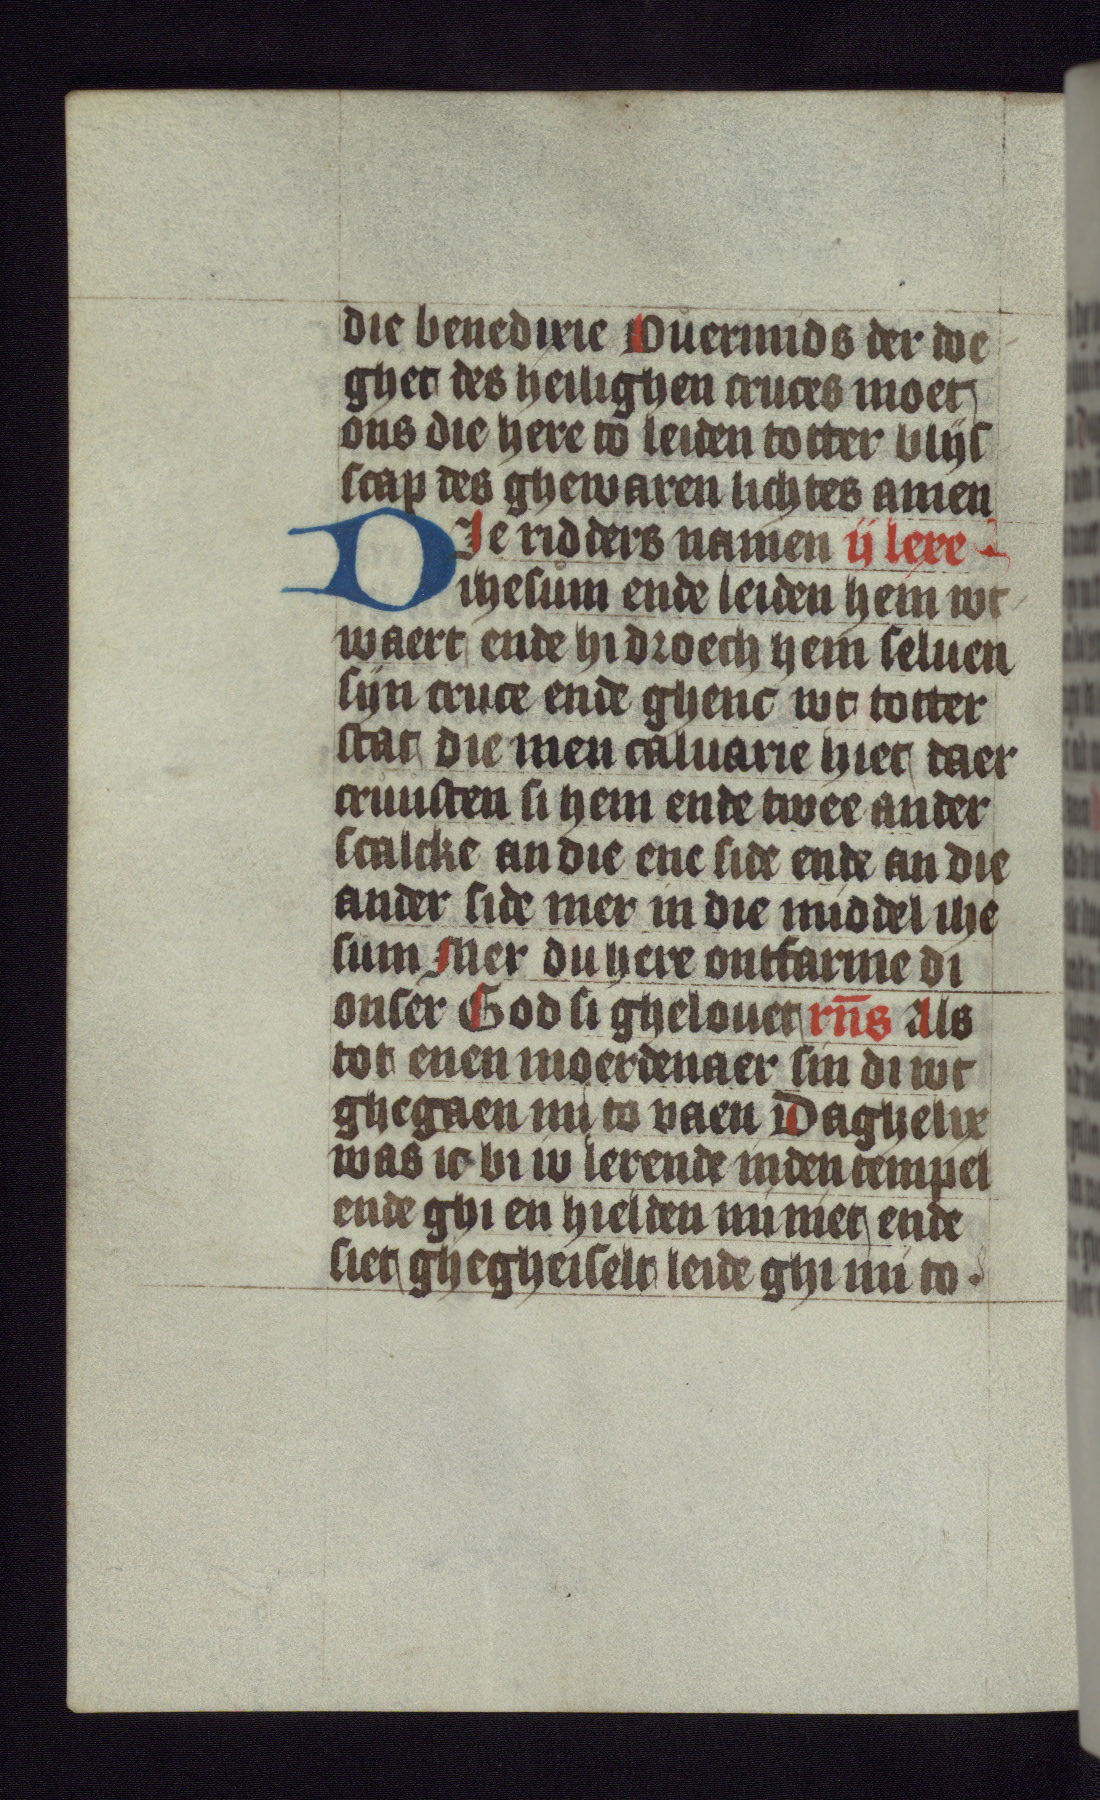 die benedixie Ouermids der doe
ghet des heilighen cruces moet
ons die here to leiden totter blijs
scap des ghewaren lichtes amen
DIe ridders namen ij lexe
ihesum ende leiden hem wt
waert ende hi droech hem seluen
sijn cruce ende ghenc wt totter
stat die men caluarie hiet daer
cruusten si hem ende twee ander
scalcke an die ene side ende an die
ander side mer in die middel ihe
sum Mer du here ontfarme di
onser God si ghelouet rn̄s Als
tot enen moerdenaer sin di wt
ghegaen mi to vaen Daghelix
was ic bi iv lerende inden tempel
ende ghi en hielden mi niet ende
siet ghegheiselt leide ghi mi to